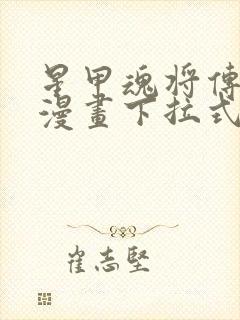 星甲魂将傳
漫畫下拉式
崔志堅